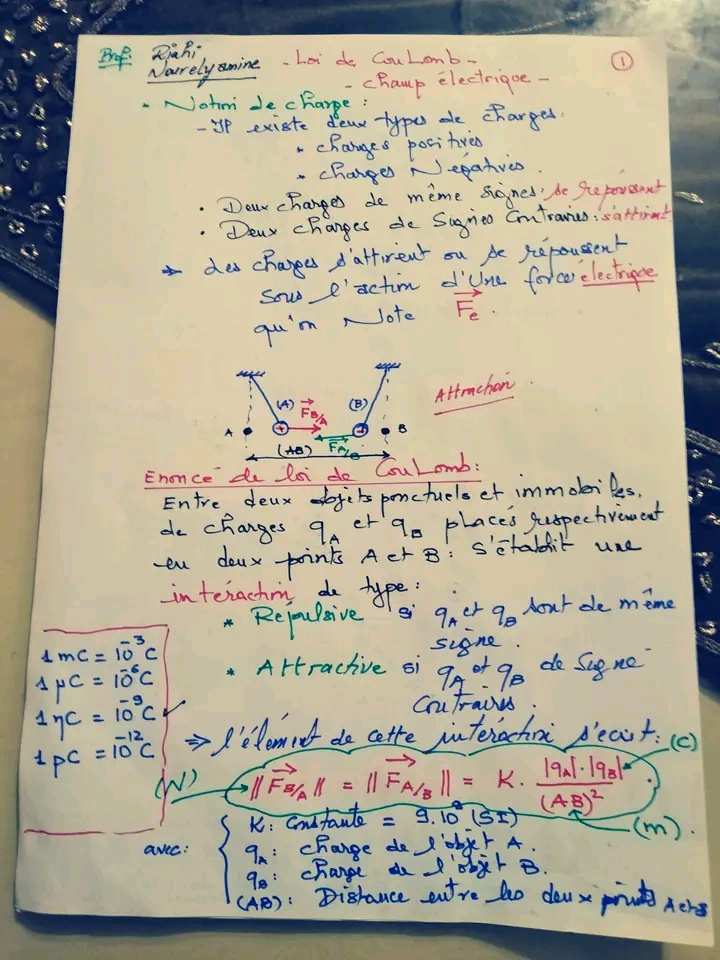 Prof. Riahi
Nourelyamine
- Loi de CouLomb - ①
- champ électrique -
* Notion de charge :
- IP existe deux types de charges.
* charges positives
* charges Négatives.
• Deux charges de même signes: se repoussent
• Deux charges de Signes Contraires: s'attirent
→ des charges s'attirent ou se répoussent
sous l'action d'Une force électrique
qu'on Note F⃗e.
(A) F⃗B/A (B) Attraction
A + + B
F⃗A/B
(AB)
Enoncé de loi de CouLomb:
Entre deux objets ponctuels et immobiles,
de charges qA et qB placés respectivement
en deux points A et B: s'établit une
interaction de type:
* Répulsive si qA et qB sont de même
signe.
* Attractive si qA et qB de Signe
Contraires.
1 mC = 10⁻³C
1 μC = 10⁻⁶C
1 ηC = 10⁻⁹C ✓
1 pC = 10⁻¹²C
⇒ l'élément de cette interaction s'ecrit: (C)
(N) ‖F⃗B/A‖ = ‖F⃗A/B‖ = K. |qA|.|qB| / (AB)² .
(m).
avec:
K: Constante = 9.10⁹ (SI)
qA: charge de l'objet A.
qB: charge de l'objet B.
(AB): Distance entre les deux points A et B